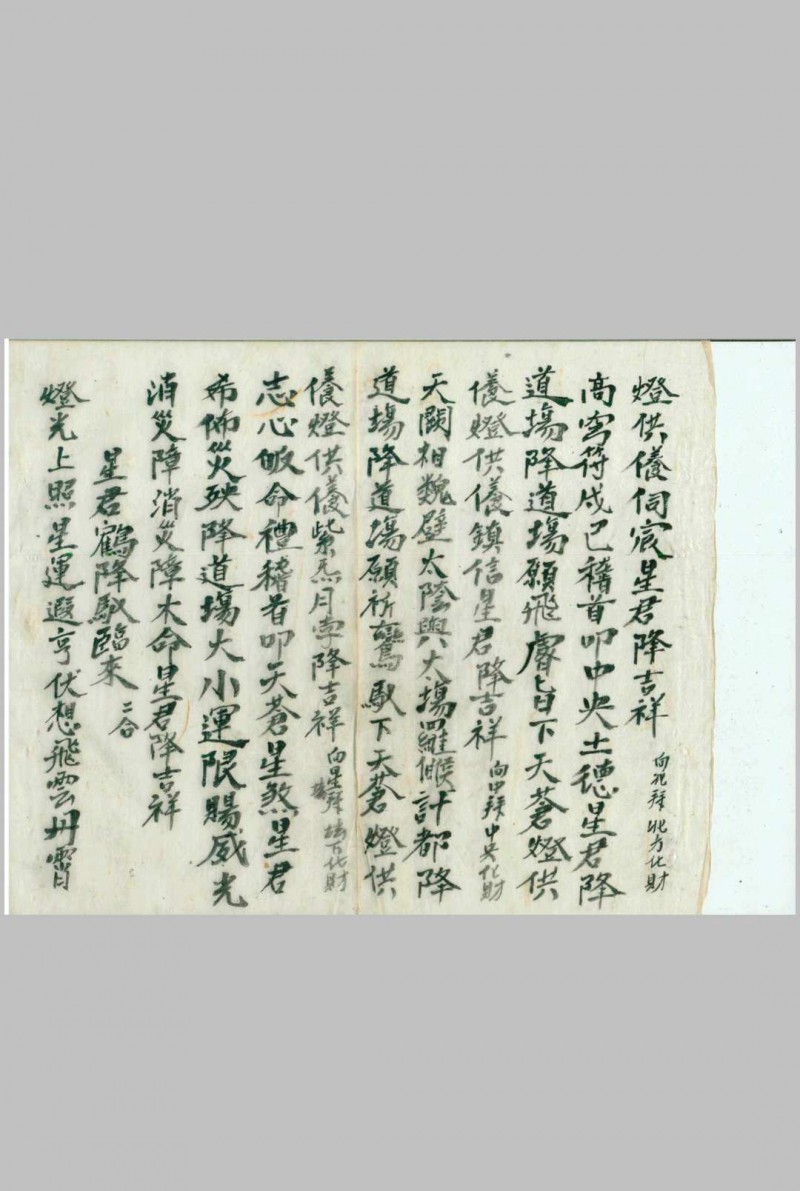 燈供養伺宸星君降吉祥 向北拜 北方化財
高穹符戊己稽首叩中央土德星君降
道場降道場願飛睿旨下天蒼燈供
養燈供養鎮信星君降吉祥 向中拜 中央化財
天闕相魏壁太陰與太場羅睺計都降
道場降道場願祈鸞馭下天蒼燈供
養燈供養紫炁月孛降吉祥 向星拜 化財
志心皈命禮稽首叩天蒼星煞星君
希佈災殃降道場大小運限賜威光
消災障消災障木命星君降吉祥
星君鶴降馭臨來 二合
燈光上照星運遐亨伏想飛雲丹霄